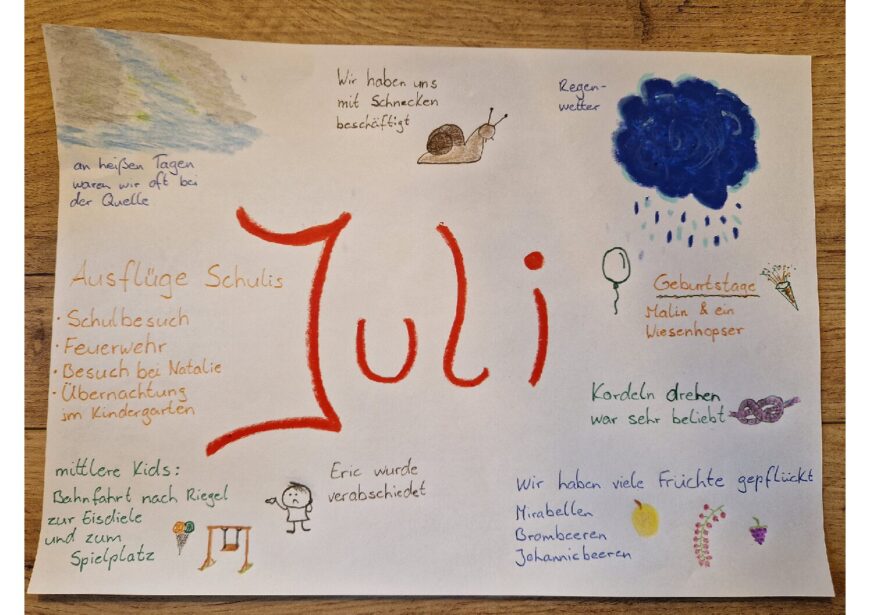 Wir haben uns
mit Schnecken
beschäftigt
Regen-
wetter
an heißen Tagen
waren wir oft bei
der Quelle
Juli
Ausflüge Schulis
· Schulbesuch
· Feuerwehr
· Besuch bei Natalie
· Übernachtung
im Kindergarten
Geburtstage
Malin & ein
Wiesenhopser
Kordeln drehen
war sehr beliebt
mittlere Kids:
Bahnfahrt nach Riegel
zur Eisdiele
und zum
Spielplatz
Eric wurde
verabschiedet
Wir haben viele Früchte gepflückt
Mirabellen
Brombeeren
Johannisbeeren